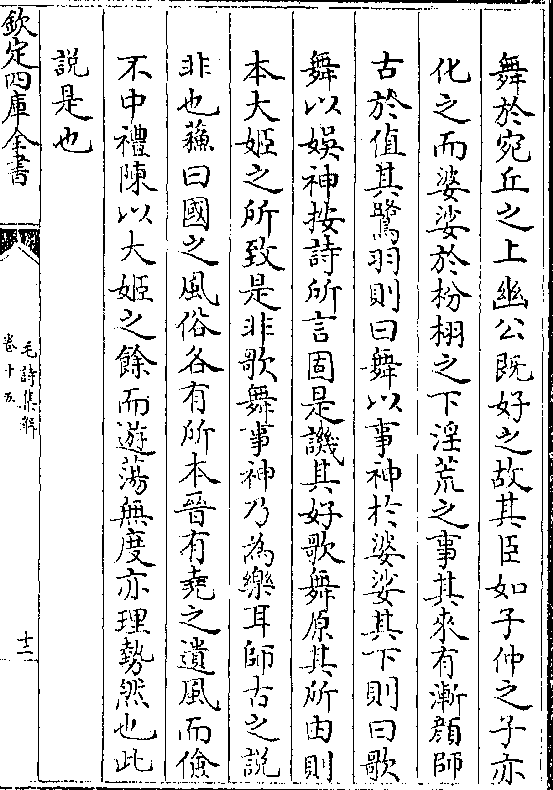 舞於宛丘之上幽公既好之故其臣如子仲之子亦
化之而婆娑於枌栩之下淫荒之事其來有漸顔師
古於值其鷺羽則曰舞以事神於婆娑其下則曰歌
舞以娛神按詩所言固是譏其好歌舞原其所由則
本大姬之所致是非歌舞事神乃為樂耳師古之説
非也蘓曰國之風俗各有所本晉有堯之遺風而儉
不中禮陳以大姬之餘而遊蕩無度亦理勢然也此
説是也
欽定四庫全書
毛詩集解
卷十五
十二